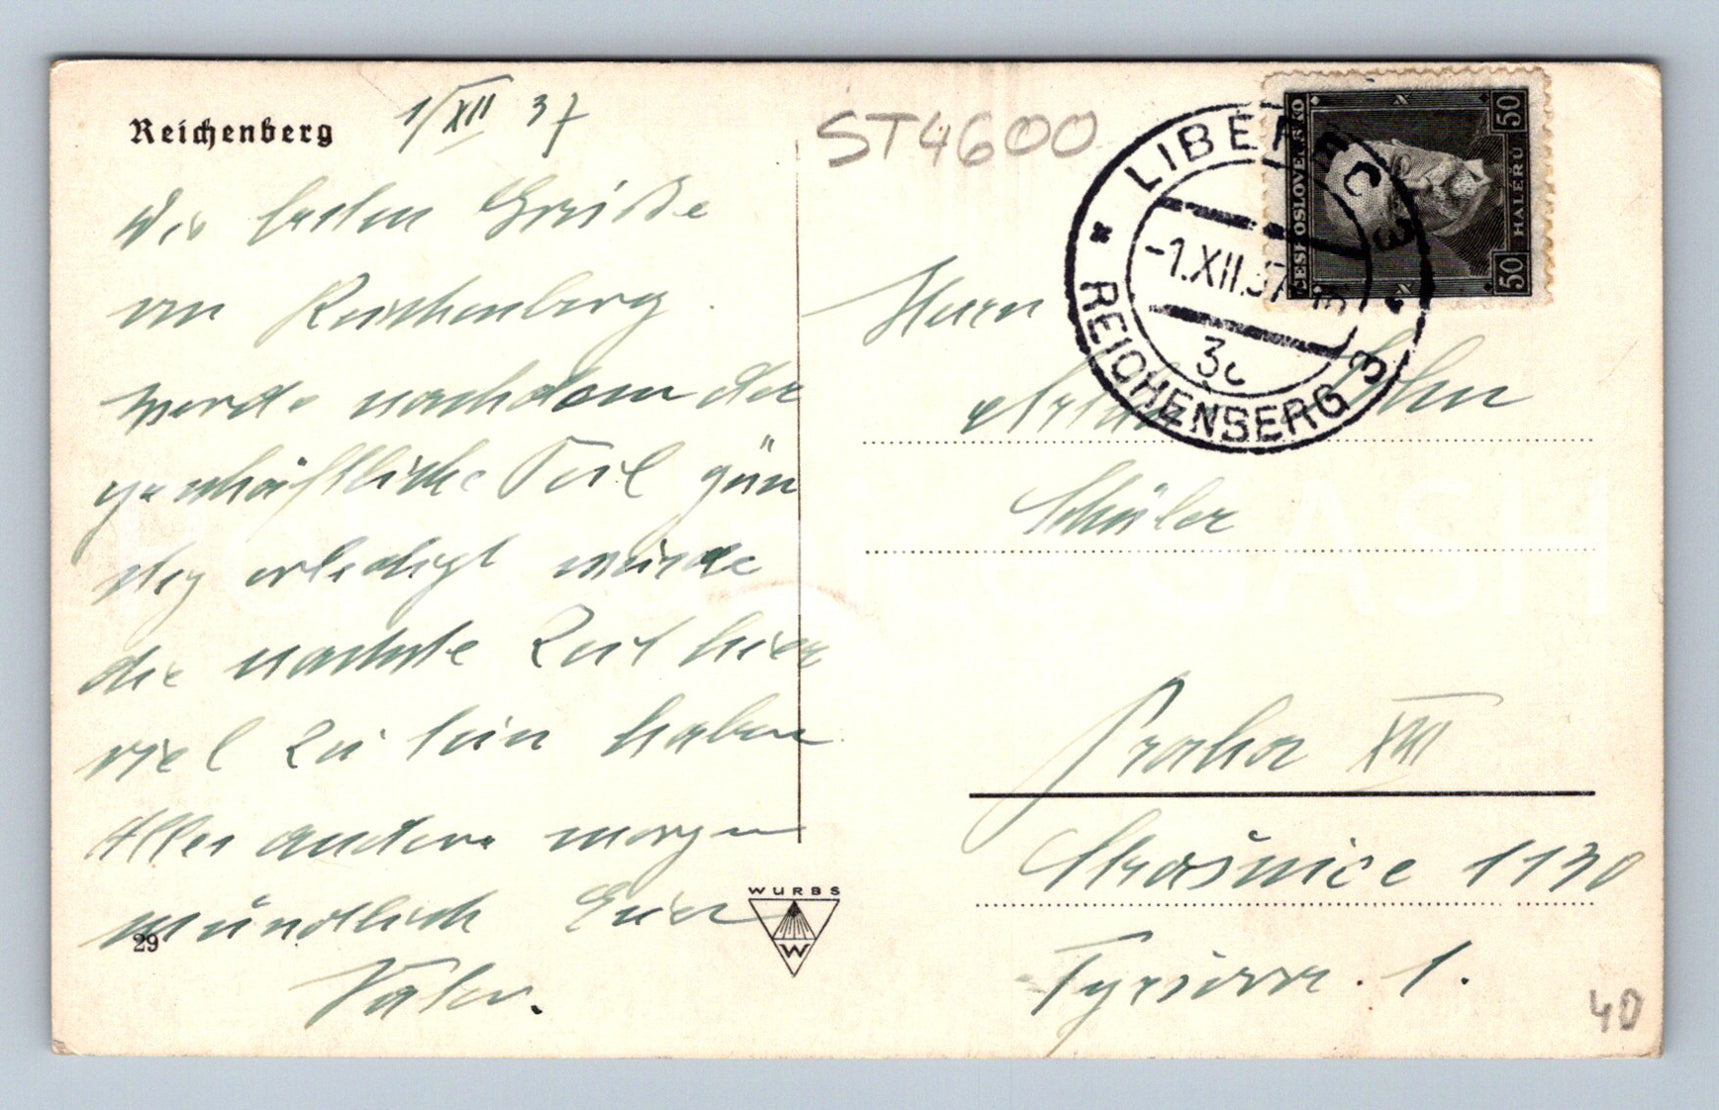 Reichenberg
1/XII 37
Die besten Grüße
von Reichenberg.
werde nachdem der
geschäftliche Teil gün
stig erledigt wurde
die nächste Zeit hier
viel zu tun haben
Alles andere morgen
mündlich Euer
Vater.
29
WURBS
W
ST4600
LIBEREC 3
-1.XII.37
3c
REICHENBERG 3
ČESKOSLOVENSKO
50 HALÉŘŮ 50
Herrn
Artur Kohn
Schüler
Praha XIII
Strašnice 1130
Tyršova. 1.
40